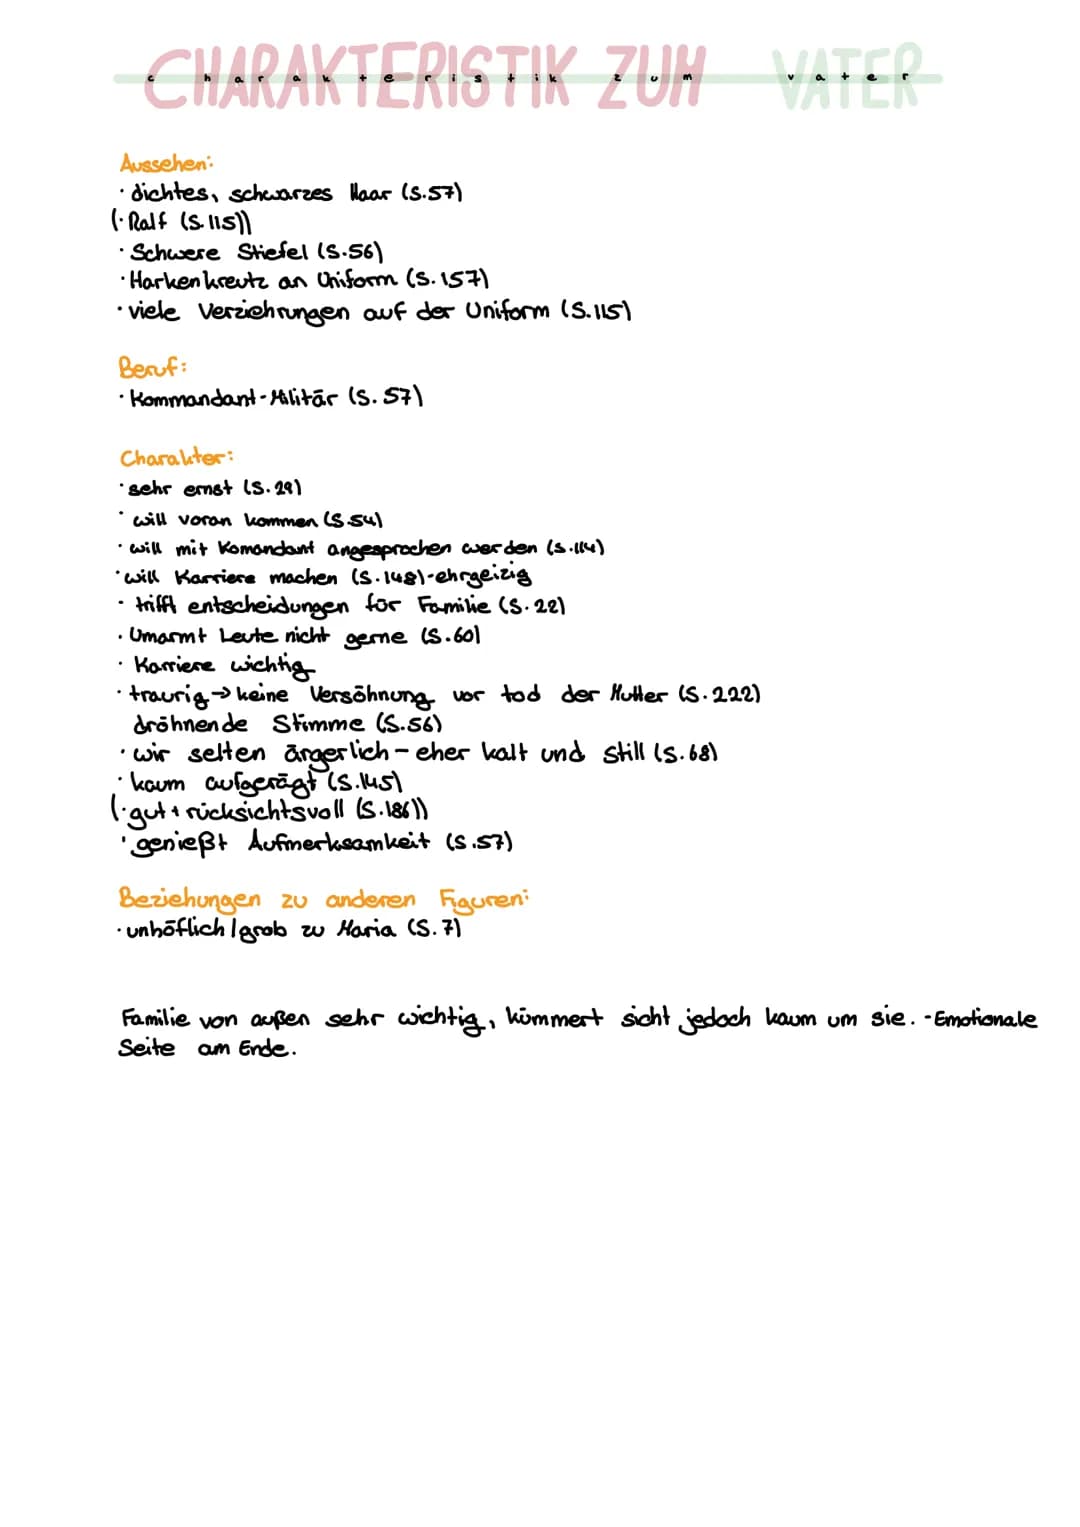 CHARAKTERISTIK ZUM VATER
charakteristik zum vater
Aussehen:
· dichtes, schwarzes Haar (S.57)
(· Ralf (S.115))
· Schwere Stiefel (S.56)
· Harkenkreutz an Uniform (S.157)
· viele Verziehrungen auf der Uniform (S.115)
Beruf:
· Kommandant-Militär (S.57)
Charakter:
· sehr ernst (S.29)
· will voran kommen (S.54)
· will mit Komandant angesprochen werden (S.114)
· will Karriere machen (S.148)-ehrgeizig
· trifft entscheidungen für Familie (S.22)
· Umarmt Leute nicht gerne (S.60)
· Karriere wichtig
· traurig → keine Versöhnung vor tod der Mutter (S.222)
dröhnende Stimme (S.56)
· wir selten ärgerlich - eher kalt und still (S.68)
· kaum aufgerägt (S.145)
(· gut + rücksichtsvoll (S.186))
· genießt Aufmerksamkeit (S.57)
Beziehungen zu anderen Figuren:
· unhöflich / grob zu Maria (S.7)
Familie von außen sehr wichtig, kümmert sicht jedoch kaum um sie. - Emotionale
Seite am Ende.